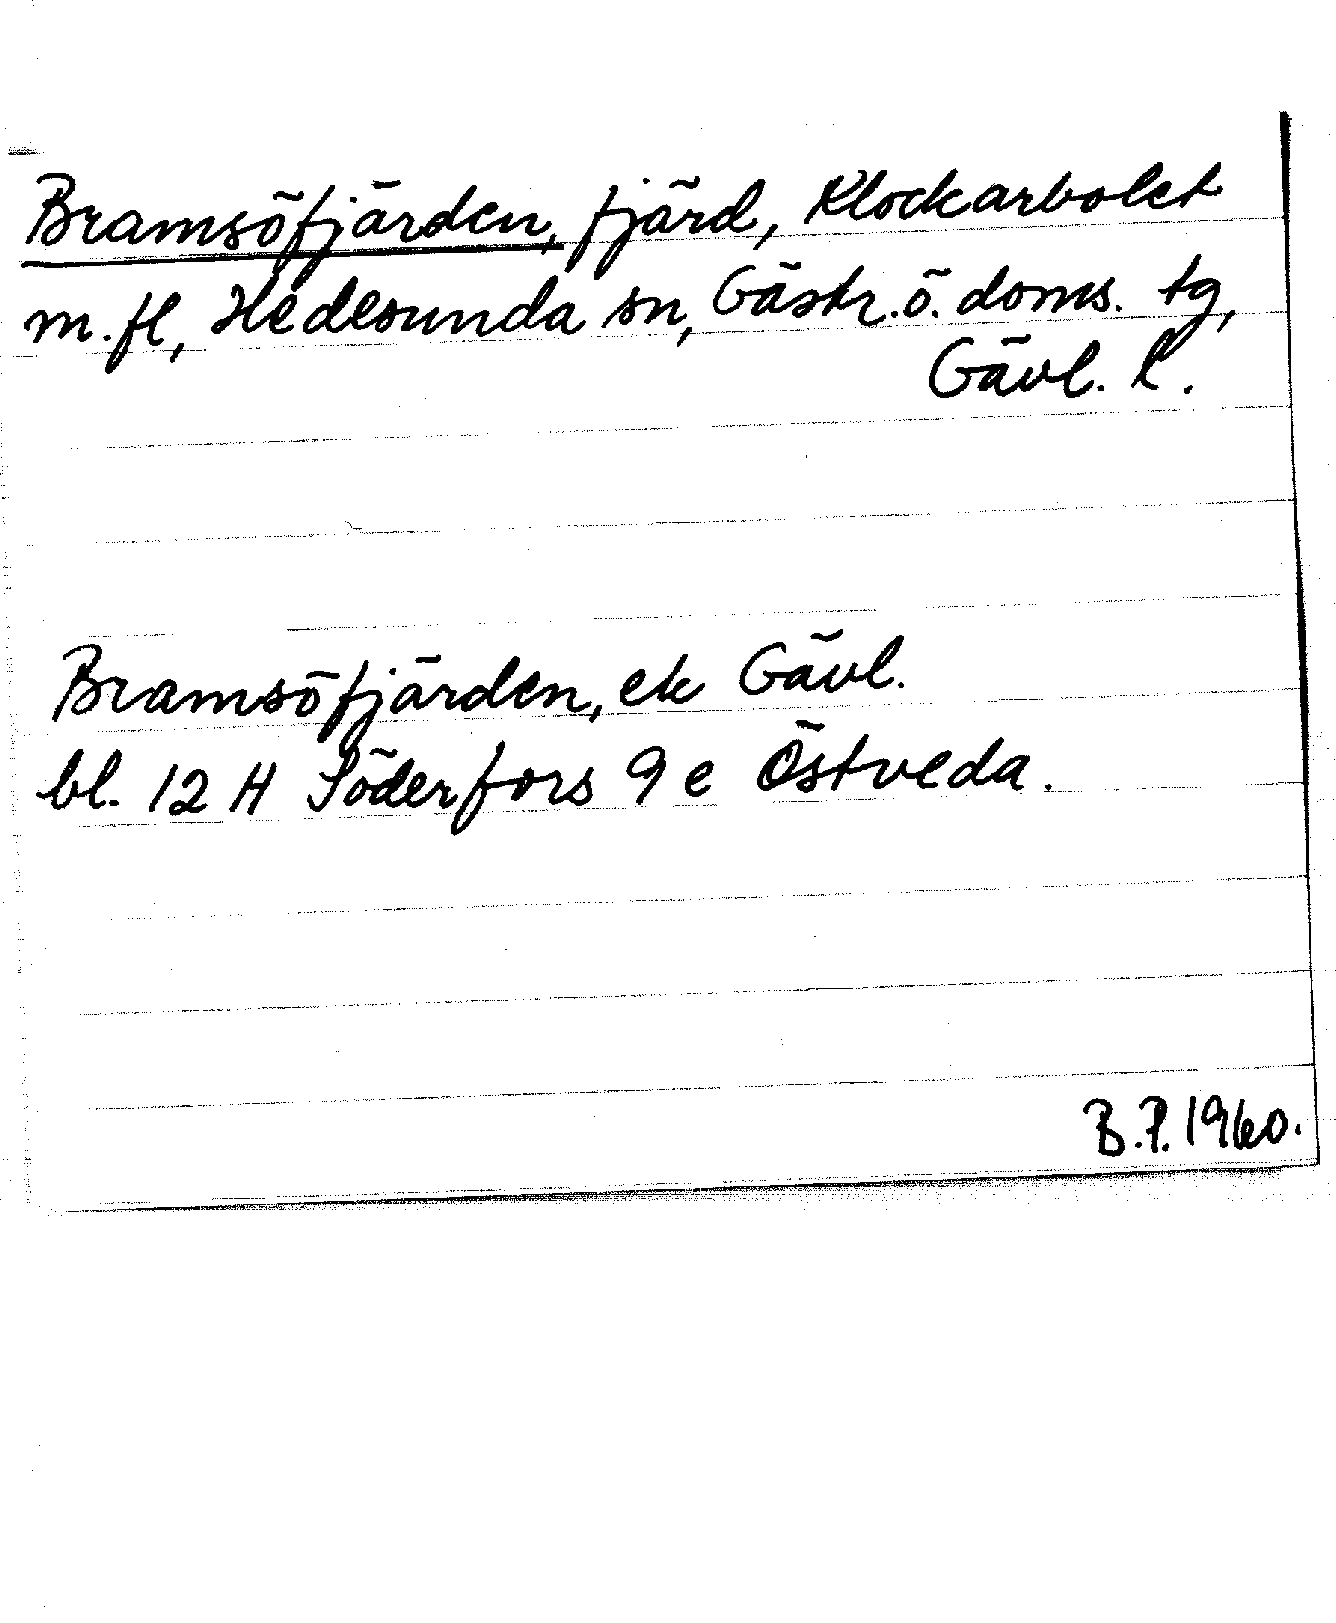 Bramsöfjärden, fjärd, Klockarbolet
m.fl, Hedesunda sn, Gästr.ö. doms. tg,
Gävl. l.
Bramsöfjärden, ek Gävl.
bl. 12 H Söderfors 9 e Östveda.
B.P. 1960.